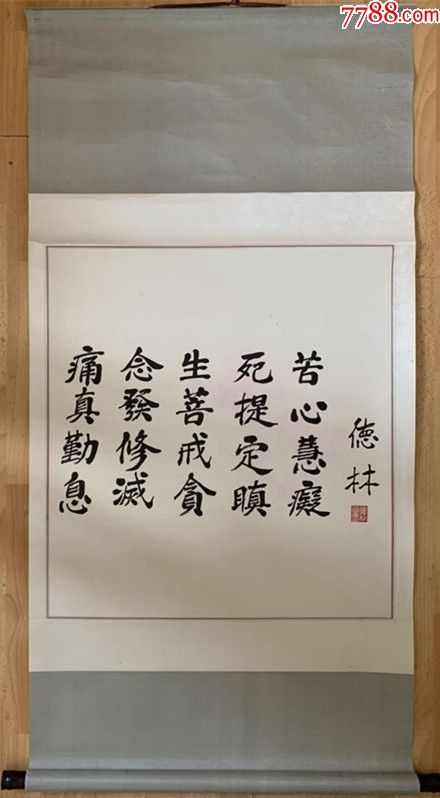 7788.com
痛念生死苦
真發菩提心
勤修戒定慧
息滅貪瞋癡
德林